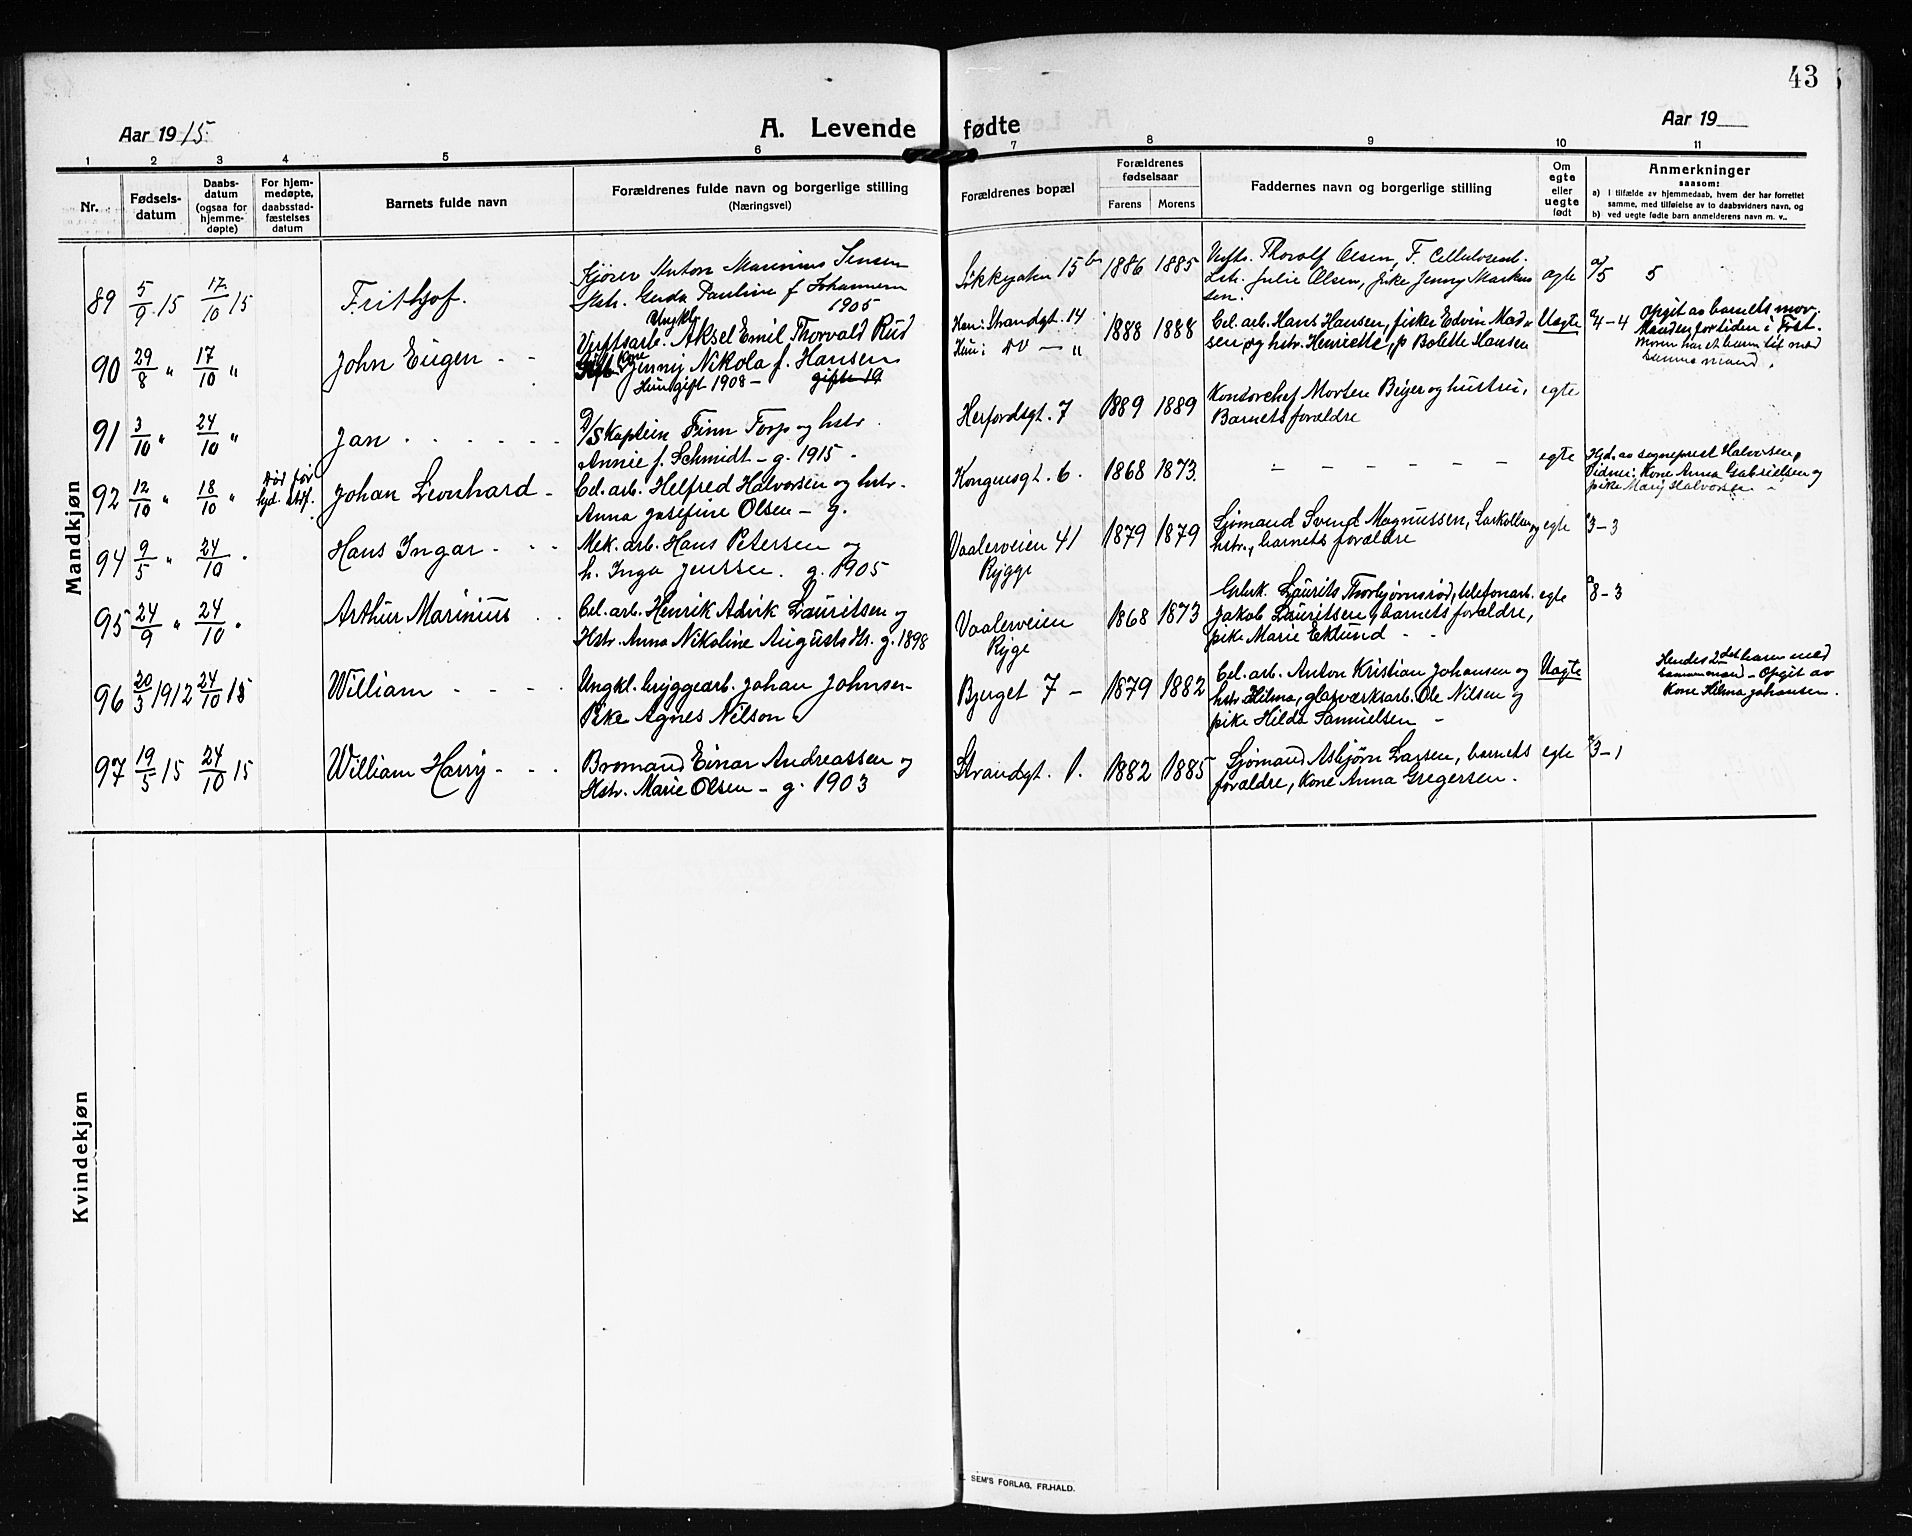 43
Aar 1915
A. Levende fødte
Aar 19
1 2 3 4 5 6 7 8 9 10 11
Nr.
Fødsels-
datum
Daabs-
datum
(ogsaa for
hjemme-
døpte)
For hjem-
medøpte,
daabsstad-
fæstelses
datum
Barnets fulde navn
Forældrenes fulde navn og borgerlige stilling
(Næringsvei)
Forældrenes bopæl
Forældrenes
fødselsaar
Farens Morens
Faddernes navn og borgerlige stilling
Om
egte
eller
uegte
født
Anmerkninger
saasom:
a) I tilfælde av hjemmedaab, hvem der har forrettet
samme, med tilføielse av to daabsvidners navn, og
b) ved uegte fødte barn anmelderens navn m. v..
Mandkjøn
89 5/9 15 17/10 15 Frithjof.
Kjører Anton Marinius Jensen
Hstr. Gerda Pauline f Johannesen
1905
15 b 1886 1885
Verfts. Thorolf Olsen, F. Cellulosearb.
Hstr. Julie Olsen, Pike Jenny Markus
sen.
egte 5
90 29/8 " 17/10 " John Eugen - -
Ungkl.
Verftsarb. Aksel Emil Thorvald Rud
Gift Kone Jenny Nikola f. Hansen
Hun gift 1908 - gifte 19
Han: Strandgt. 14
Hun: do — "
1888 1888
Cel. arb. Hans Hansen, fisker Edvin Mad-
sen og hstr. Henriette, p Bolette Hansen
Uegte 4-4
Opgit av barnets mor.
Manden for tiden i Frst.
Moren har et barn til med
samme mand.
91 3/10 " 24/10 " Jan - - - - -
D/S Kaptein Finn Torp og hstr.
Annie f. Schmidt - g. 1915 -
Herfordsgt. 7 1889 1889
Kontorchef Morten Beyer og hustru,
Barnets forældre
egte
92 12/10 " 18/10 " Død før
stdf. Johan Leonhard -
Cel. arb. Helfred Halvorsen og hstr.
Anna Josefine Olsen - g.
Kongensgt. 6. 1868 1873. - - - - - - -
egte
Hjd. av sogneprest Halvorsen,
Vidner: Kone Anna Gabrielsen og
pike Mary Halvorsen -
94 9/5 " 24/10 " Hans Ingar - - -
Mek. arb. Hans Petersen og
h. Inga Jenssen. g. 1905
Vaalerveien 41
Rygge
1879 1879
Sjømand Svend Magnussen, Larkollen og
hstr., barnets forældre
egte 3-3
95 24/9 " 24/10 " Arthur Marinius - -
Cel. arb. Henrik Advik Lauritsen og
Hstr. Anna Nikoline Augusts dtr. g. 1898
Vaalerveien
Ryge
1868 1873
Grbrk. Laurits Thorbjørnsrød, telefonarb.
Jakob Lauritsen, barnets forældre,
pike Marie Eklund - -
egte 8-3
96 20/3 1912 24/10 15 William - - - -
Ungkl. bryggearb. Johan Johnsen-
Pike Agnes Nilson
Bjerget 7 - 1879 1882
Cel. arb. Anton Kristian Johansen og
hstr Hilma, glasværksarb. Ole Nilsen og
pike Hilda Samuelsen -
Uegte
Hendes 2det barn med
samme mand - Opgit av
Kone Hilma Johansen.
97 19/5 15 24/10 15 William Harry - - -
Bromand Einar Andreassen og
Hstr. Marie Olsen - g. 1903
Strandgt. 1. 1882 1885
Sjømand Asbjørn Larsen, barnets
forældre, Kone Anna Gregersen -
egte 3-1
Kvindekjøn
SEM'S FORLAG, FR.HALD.